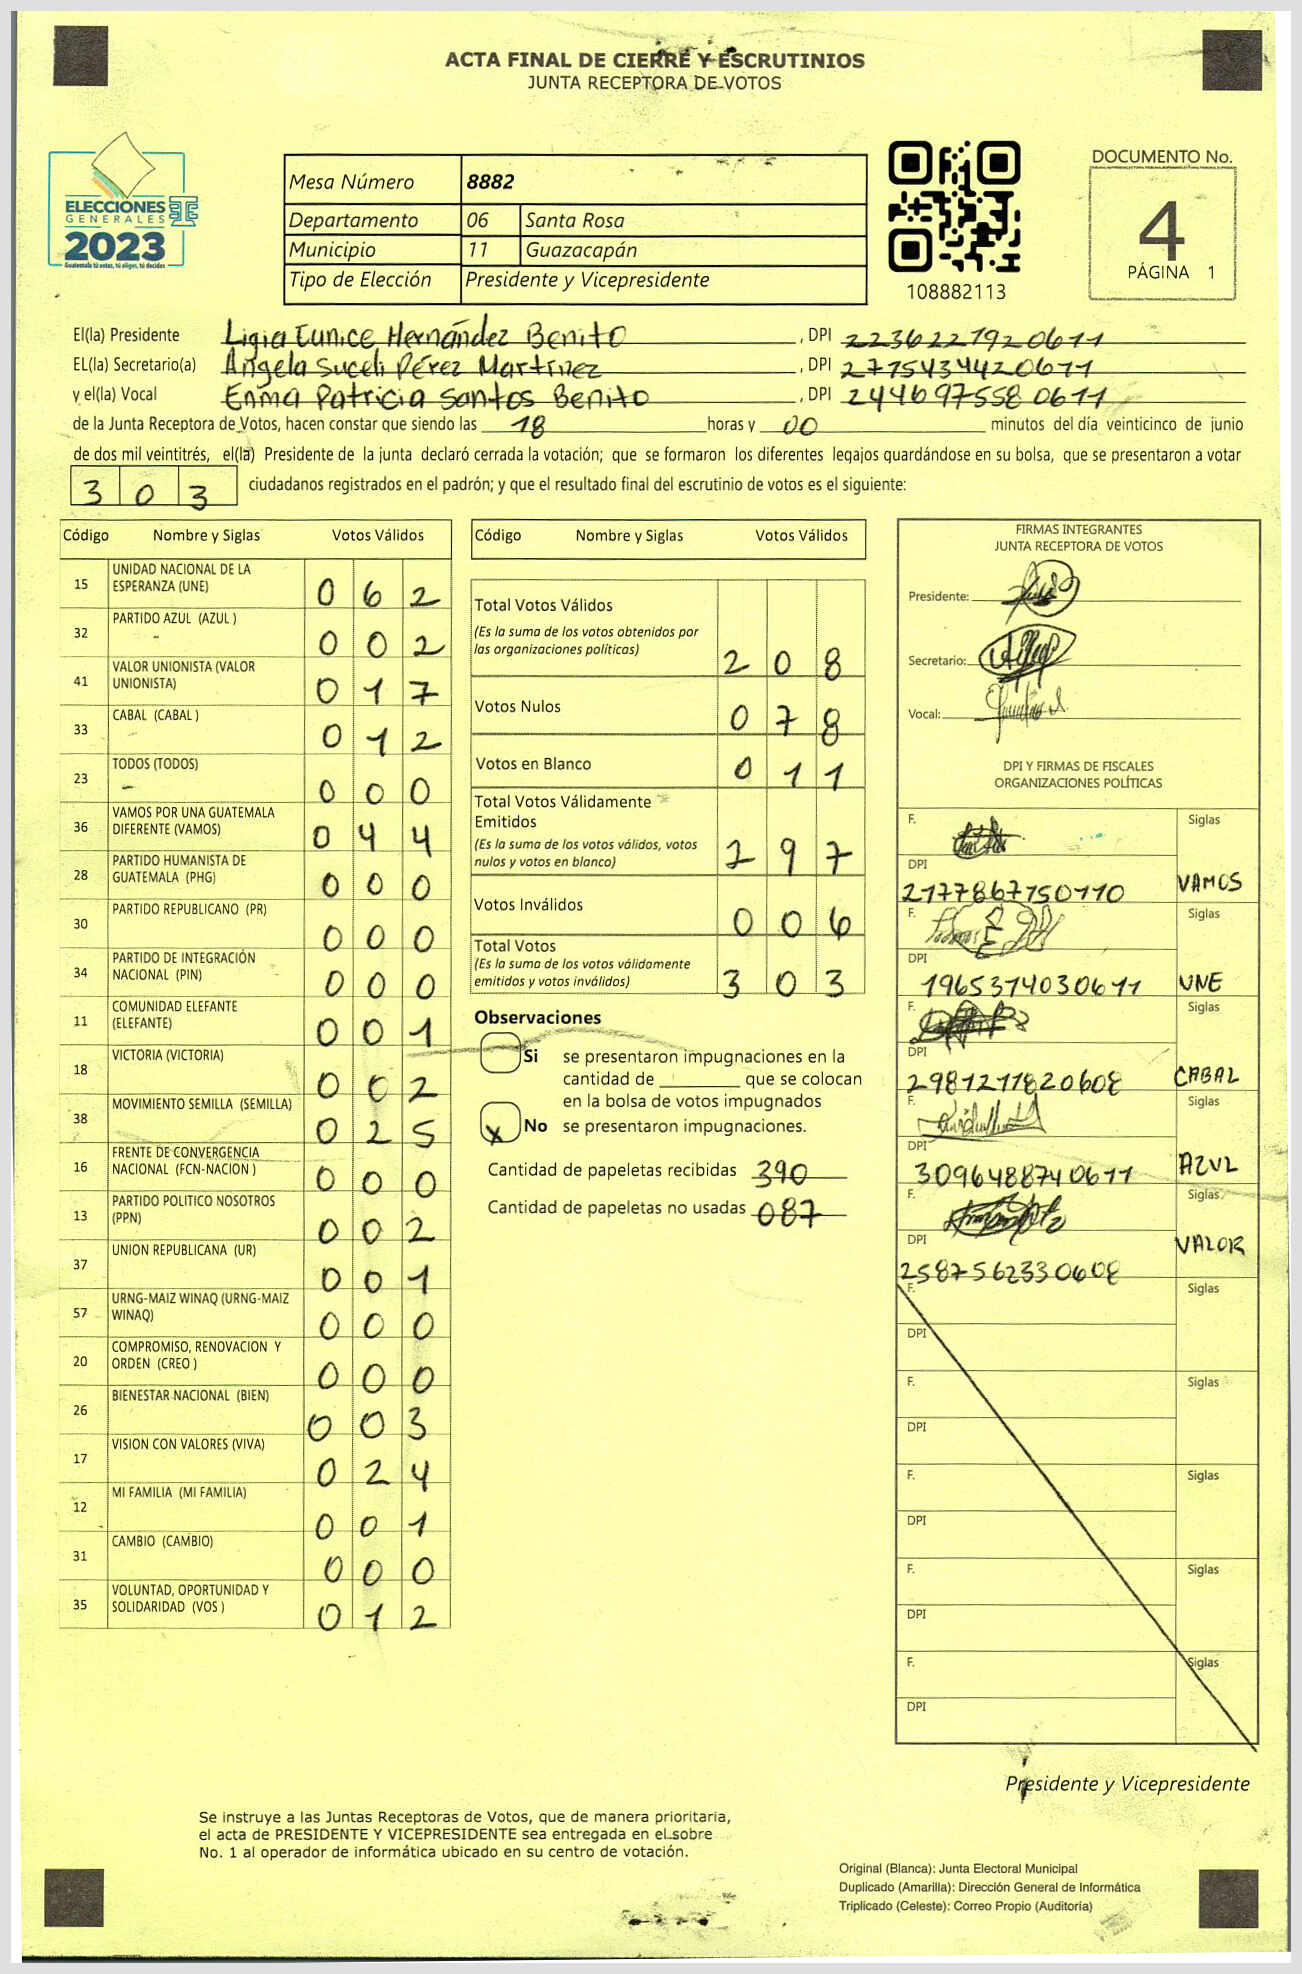 ACTA FINAL DE CIERRE Y ESCRUTINIOS
JUNTA RECEPTORA DE VOTOS
ELECCIONES
GENERALES
2023
Guatemala tú votas, tú eliges, tú decides
Mesa Número 8882
Departamento 06 Santa Rosa
Municipio 11 Guazacapán
Tipo de Elección Presidente y Vicepresidente
108882113
DOCUMENTO No.
4
PÁGINA 1
El(la) Presidente Ligia Eunice Hernández Benito, DPI 2236227920611
EL(la) Secretario(a) Angela Suceli Pérez Martínez, DPI 2775434420611
y el(la) Vocal Enma Patricia Santos Benito, DPI 2446975580611
de la Junta Receptora de Votos, hacen constar que siendo las 18 horas y 00 minutos del día veinticinco de junio
de dos mil veintitrés, el(la) Presidente de la junta declaró cerrada la votación; que se formaron los diferentes legajos guardándose en su bolsa, que se presentaron a votar
303 ciudadanos registrados en el padrón; y que el resultado final del escrutinio de votos es el siguiente:
Código Nombre y Siglas Votos Válidos
15 UNIDAD NACIONAL DE LA
ESPERANZA (UNE) 062
32 PARTIDO AZUL (AZUL ) 002
41 VALOR UNIONISTA (VALOR
UNIONISTA) 017
33 CABAL (CABAL ) 012
23 TODOS (TODOS) 000
36 VAMOS POR UNA GUATEMALA
DIFERENTE (VAMOS) 044
28 PARTIDO HUMANISTA DE
GUATEMALA (PHG) 000
30 PARTIDO REPUBLICANO (PR) 000
34 PARTIDO DE INTEGRACIÓN
NACIONAL (PIN) 000
11 COMUNIDAD ELEFANTE
(ELEFANTE) 001
18 VICTORIA (VICTORIA) 002
38 MOVIMIENTO SEMILLA (SEMILLA) 025
16 FRENTE DE CONVERGENCIA
NACIONAL (FCN-NACION ) 000
13 PARTIDO POLITICO NOSOTROS
(PPN) 002
37 UNION REPUBLICANA (UR) 001
57 URNG-MAIZ WINAQ (URNG-MAIZ
WINAQ) 000
20 COMPROMISO, RENOVACION Y
ORDEN (CREO ) 000
26 BIENESTAR NACIONAL (BIEN) 003
17 VISION CON VALORES (VIVA) 024
12 MI FAMILIA (MI FAMILIA) 001
31 CAMBIO (CAMBIO) 000
35 VOLUNTAD, OPORTUNIDAD Y
SOLIDARIDAD (VOS ) 012
Código Nombre y Siglas Votos Válidos
Total Votos Válidos
(Es la suma de los votos obtenidos por
las organizaciones políticas) 208
Votos Nulos 078
Votos en Blanco 011
Total Votos Válidamente
Emitidos
(Es la suma de los votos válidos, votos
nulos y votos en blanco) 297
Votos Inválidos 006
Total Votos
(Es la suma de los votos válidamente
emitidos y votos inválidos) 303
Observaciones
Si se presentaron impugnaciones en la
cantidad de ________ que se colocan
en la bolsa de votos impugnados
x No se presentaron impugnaciones.
Cantidad de papeletas recibidas 390
Cantidad de papeletas no usadas 087
FIRMAS INTEGRANTES
JUNTA RECEPTORA DE VOTOS
Presidente:
Secretario:
Vocal:
DPI Y FIRMAS DE FISCALES
ORGANIZACIONES POLÍTICAS
F. Siglas
DPI
2177867750110 VAMOS
F. Siglas
DPI
1965374030611 UNE
F. Siglas
DPI
2981211820608 CABAL
F. Siglas
DPI
3096488740611 AZUL
F. Siglas
DPI
2587562330608 VALOR
F. Siglas
DPI
F. Siglas
DPI
F. Siglas
DPI
F. Siglas
DPI
F. Siglas
DPI
Presidente y Vicepresidente
Se instruye a las Juntas Receptoras de Votos, que de manera prioritaria,
el acta de PRESIDENTE Y VICEPRESIDENTE sea entregada en el sobre
No. 1 al operador de informática ubicado en su centro de votación.
Original (Blanca): Junta Electoral Municipal
Duplicado (Amarilla): Dirección General de Informática
Triplicado (Celeste): Correo Propio (Auditoría)